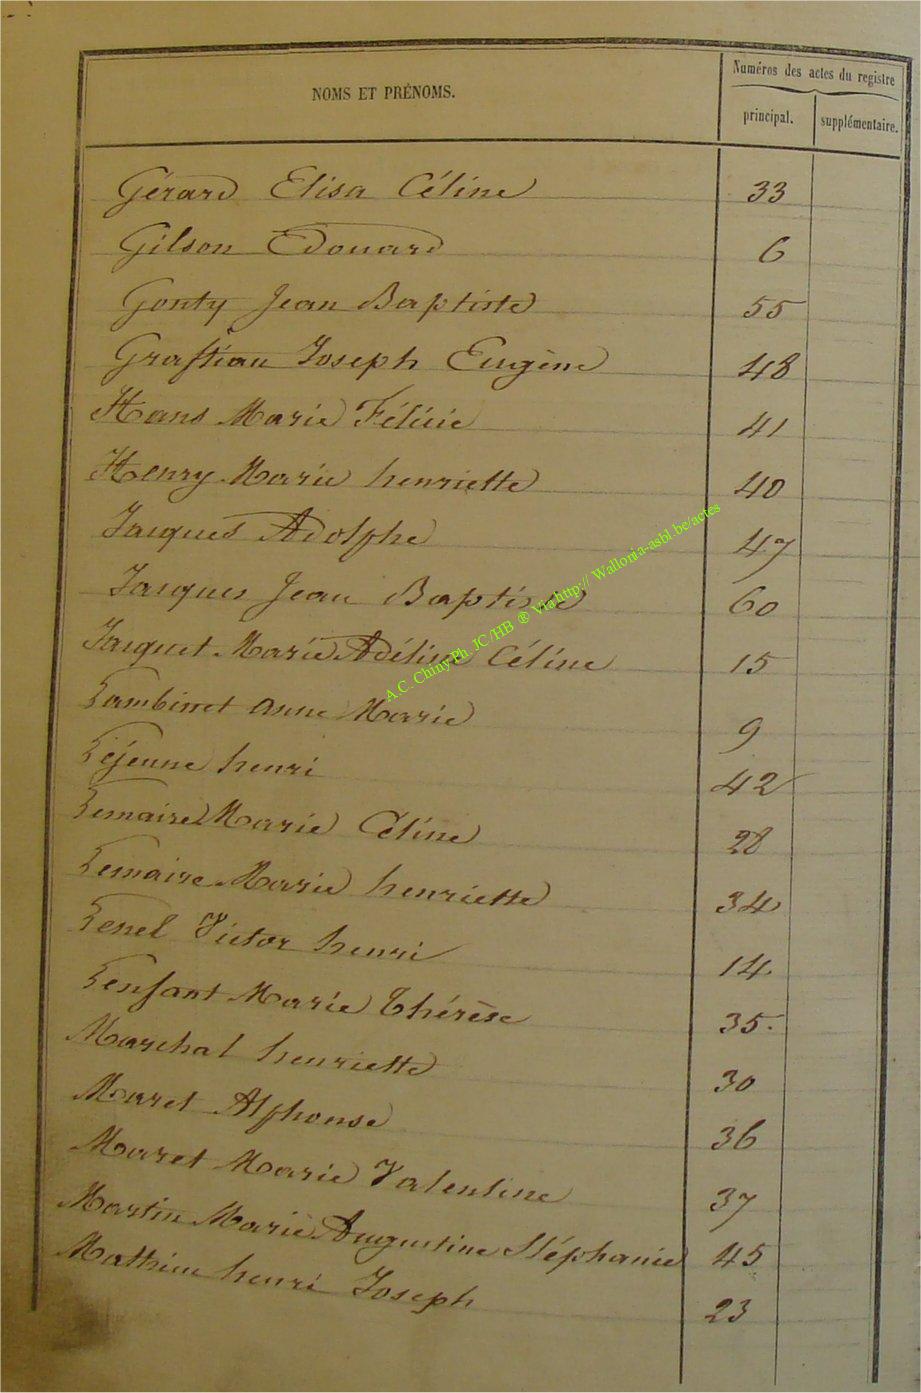 NOMS ET PRÉNOMS.
Numéros des actes du registre
principal.
supplémentaire.
Gérard Elisa Céline 33
Gilson Edouard 6
Gonty Jean Baptiste 55
Graftiau Joseph Eugène 48
Hans Marie Félicie 41
Henry Marie henriette 40
Jacques Adolphe 47
Jacques Jean Baptiste 60
Jacquet Marie Adéline Céline 15
Lambinet anne Marie 9
Léjeune henri 42
Lemaire Marie Céline 28
Lemaire Marie henriette 34
Lenel Victor henri 14
Lenfant Marie Thérèse 35.
Marchal henriette 30
Maret Alphonse 36
Maret Marie Valentine 37
Martin Marie Augustine Stéphanie 45
Mathieu henri Joseph 23
A.C. Chiny Ph. JC/HB ® Via http:// Wallonia-asbl.be/actes